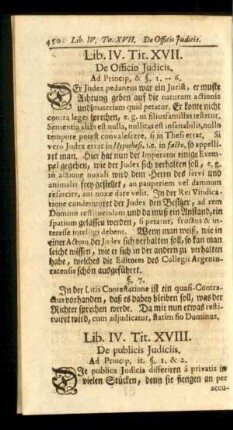 450 Lib. IV. Tit. XVII. De Officio Judicis.
Lib. IV. Tit. XVII.
De Officio Judicis,
Ad Princip, & §. 1. – 6.
Er Judex pedaneus war ein Jurist, er muste
Achtung geben auf die naturam actionis
und materiam quasi petatur. Er konte nicht
contra leges sprechen, e. g. ut filiusfamilias testetur,
Sententia alias est nulla, nullitas est insanabilis, nullo
tempore potest convalescere, si in Thesi errat. Si
vero Judex errat in Hypothesi, i.e. in facto, so appelli-
ret man. Hier hat nun der Imperator einige Exem-
pel gegeben, wie der Judex sich verhalten soll, e. g.
in actione noxali wird dem Herrn des servi und
animalis frey gestellet, an pauperiem vel damnum
resarcire, aut noxæ dare velit. In der Rei Vindica-
tione condemniret der Judex den Besitzer, ad rem
Domino restituendam und da muß ein Anstand, ein
spatium gelassen werden, si peratur, fructus & in-
teresse intelligi debent. Wenn man weiß, wie in
einer Action der Judex sich verhalten soll, so kan man
leicht wissen, wie er sich in der andern zu verhalten
habe, welches die Editores des Collegii Argento-
ratensis schön ausgeführet.
§. 7.
In der Litis Contestatione ist ein quasi-Contra-
ctus vorhanden, daß es dabey bleiben soll, was der
Richter sprechen werde. Da mit nun etwas resti-
tuiret wird, cum adjudicatur, statim fio Dominus.
Lib. IV. Tit. XVIII.
De publicis Judiciis,
Ad Princip, it. §. 1. & 2.
Je publica Judicia differiren â privatis in
vielen Stücken, denn sie fiengen an per
accu-